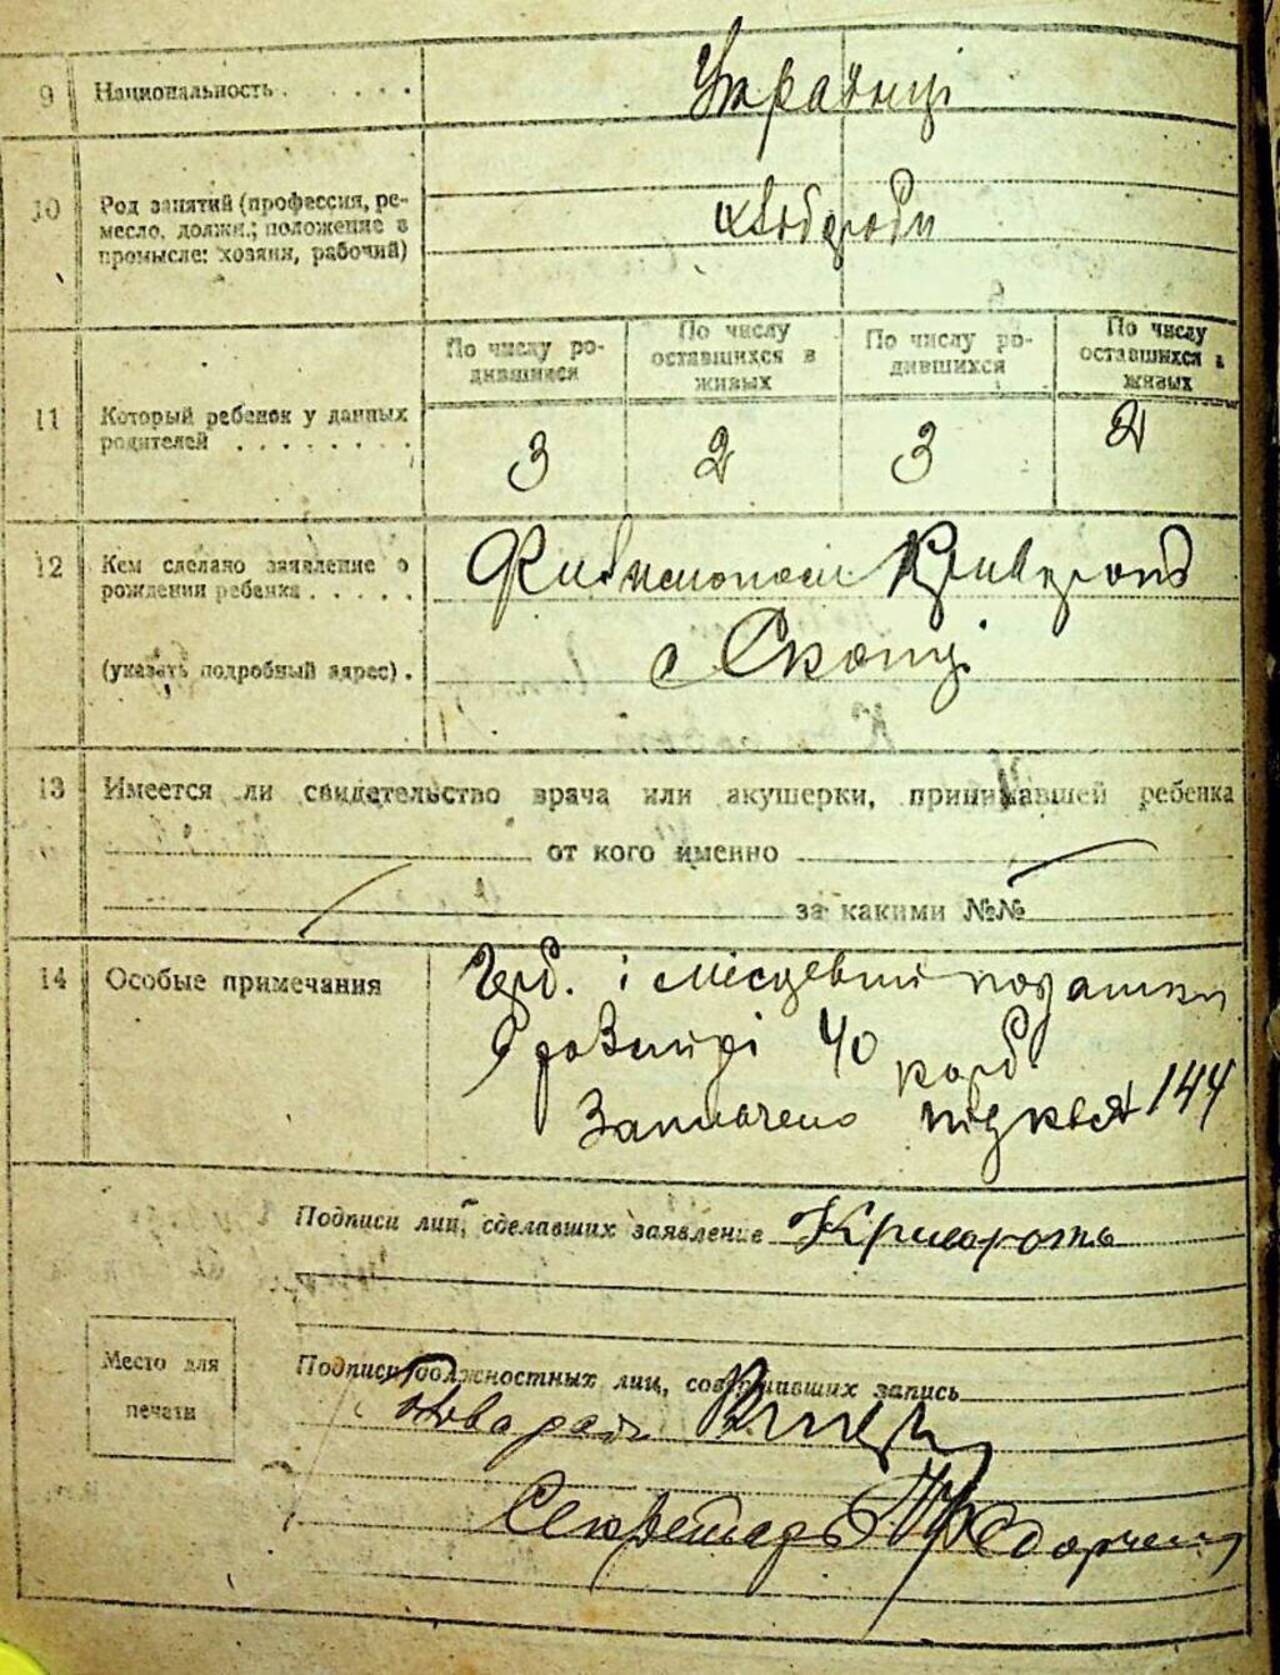 9 Национальность . . . . . .
Українці
10 Род занятий (профессия, ре-
месло, должн.; положение в
промысле: хозяин, рабочий)
хлібороби
По числу ро-
дившихся
По числу
оставшихся в
живых
По числу ро-
дившихся
По числу
оставшихся в
живых
11 Который ребенок у данных
родителей . . . . . . . .
3 2 3 2
12 Кем сделано заявление о
рождении ребенка . . . . .
(указать подробный адрес) .
13 Имеется ли свидетельство врача или акушерки, принимавшей ребенка
от кого именно
за какими №№
14 Особые примечания
Герб. і місцевий податки
40 карб.
Заплачено під квит 144
Подписи лиц, сделавших заявление
Место для
печати
Подписи должностных лиц, совершивших запись
Голова ради
Секретарь Федорченко